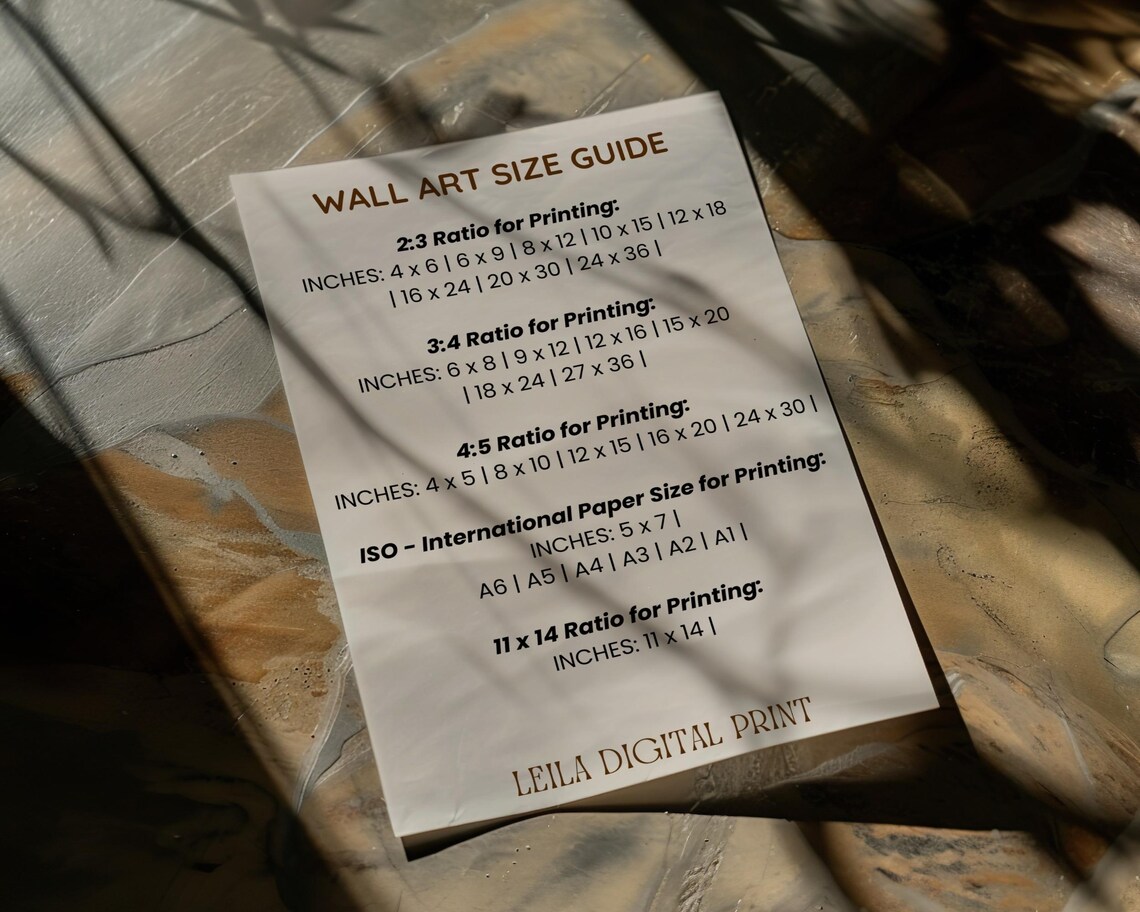 WALL ART SIZE GUIDE
2:3 Ratio for Printing:
INCHES: 4 x 6 | 6 x 9 | 8 x 12 | 10 x 15 | 12 x 18
| 16 x 24 | 20 x 30 | 24 x 36 |
3:4 Ratio for Printing:
INCHES: 6 x 8 | 9 x 12 | 12 x 16 | 15 x 20
| 18 x 24 | 27 x 36 |
4:5 Ratio for Printing:
INCHES: 4 x 5 | 8 x 10 | 12 x 15 | 16 x 20 | 24 x 30 |
ISO - International Paper Size for Printing:
INCHES: 5 x 7 |
A6 | A5 | A4 | A3 | A2 | A1 |
11 x 14 Ratio for Printing:
INCHES: 11 x 14 |
LEILA DIGITAL PRINT